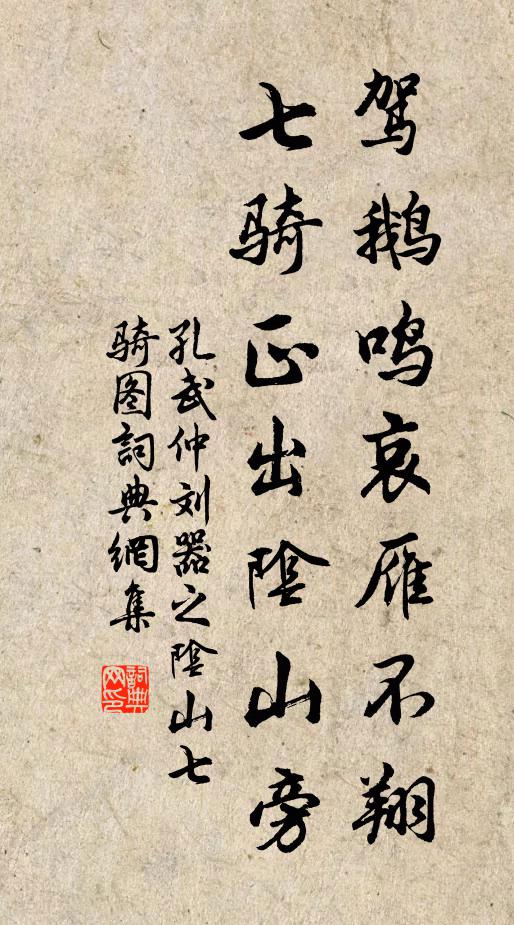 驾鹅鸣哀雁不翔
七骑正出陰山旁
孔武仲刘器之陰山七
骑图詞典網集
詞典
网印